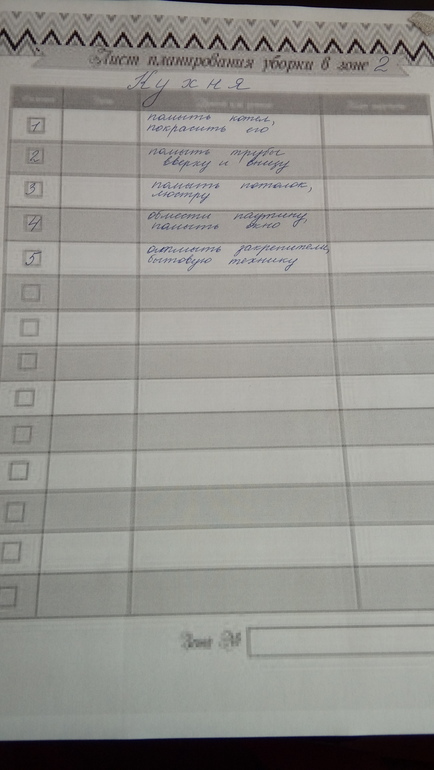 Лист планирования уборки в зоне 2
Кухня
1
помыть котел,
покрасить его
2
помыть трубы
вверху и внизу
3
помыть потолок,
люстру
4
обмести паутину,
помыть окно
5
закрепители,
бытовую технику
Зона №